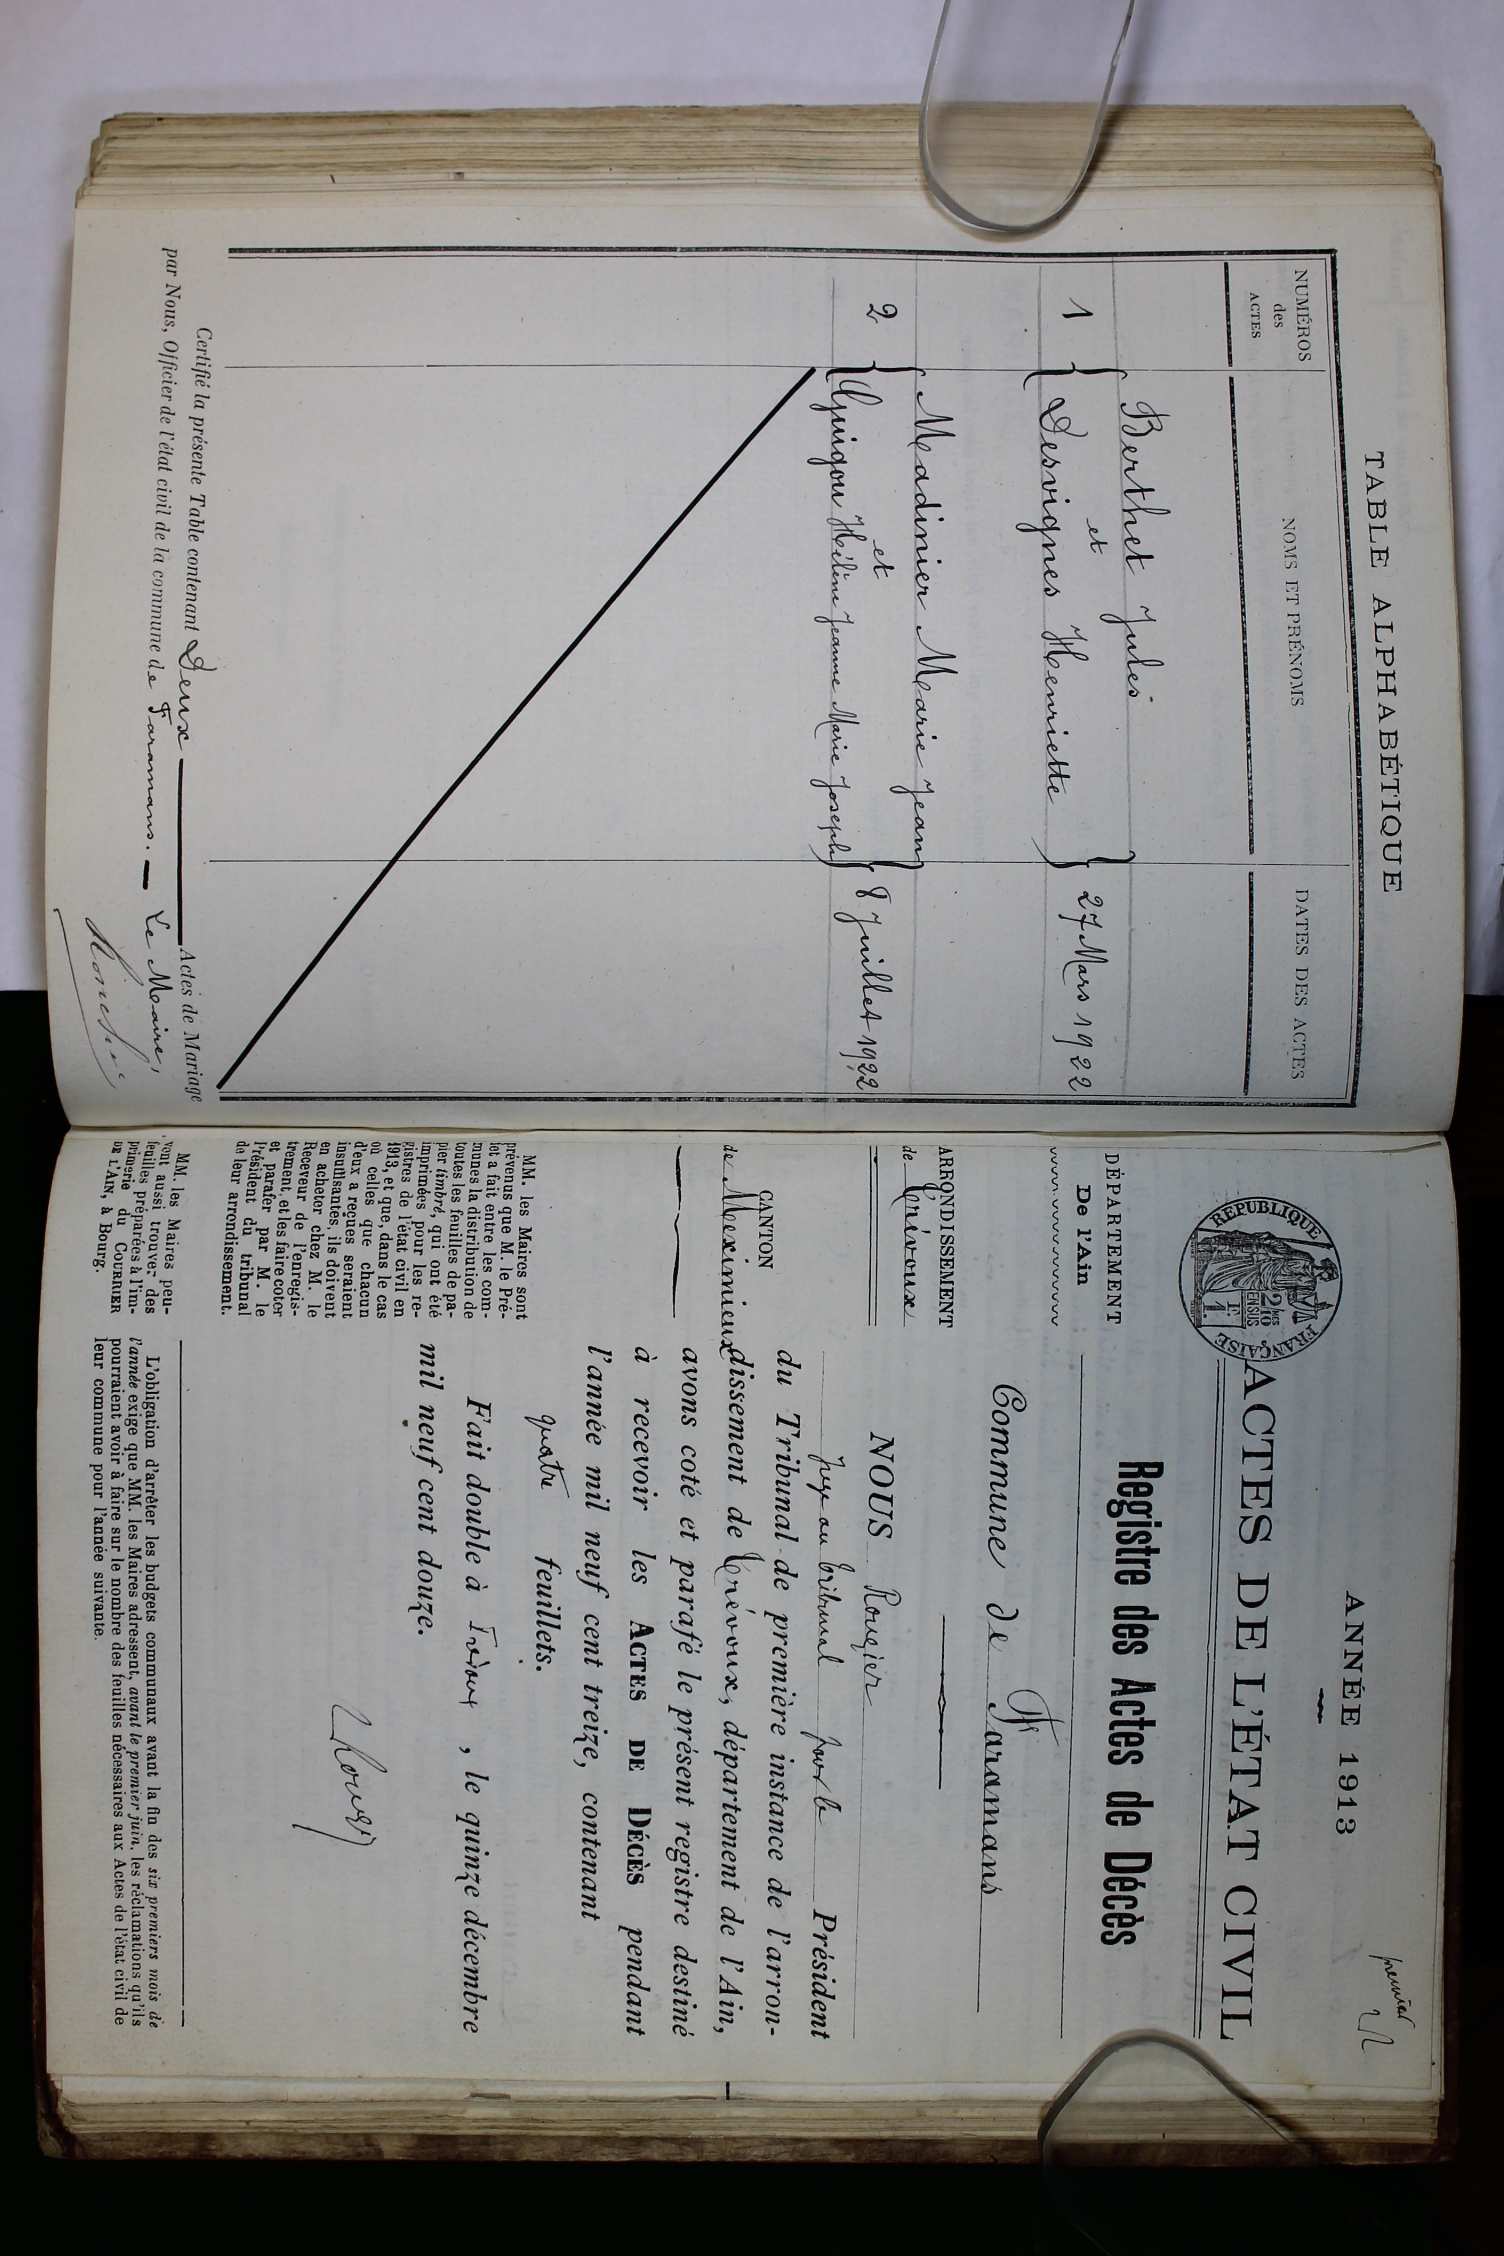 TABLE ALPHABÉTIQUE
NUMÉROS
des
ACTES
NOMS ET PRÉNOMS
DATES DES ACTES
Berthet Jules
1
et
27 Mars 1922
Desvignes Henriette
Madinier Marie Jean
2
et
8 Juillet 1922
Guigou Hélène Jeanne Marie Joseph
Certifié la présente Table contenant Deux Actes de Mariage
par Nous, Officier de l'état civil de la commune de Faramans. Le Maire,
ANNÉE 1913
premier
ACTES DE L'ÉTAT CIVIL
RÉPUBLIQUE FRANÇAISE
2/10 MES
EN SUS
1 F.
DÉPARTEMENT
De l'Ain
ARRONDISSEMENT
de Trévoux
CANTON
de Meximieux
MM. les Maires sont
prévenus que M. le Pré-
fet a fait entre les com-
munes la distribution de
toutes les feuilles de pa-
pier timbré, qui ont été
imprimées pour les re-
gistres de l'état civil en
1913, et que, dans le cas
où celles que chacun
d'eux a reçues seraient
insuffisantes, ils doivent
en acheter chez M. le
Receveur de l'enregis-
trement, et les faire coter
et parafer par M. le
Président du tribunal
de leur arrondissement.
MM. les Maires peu-
vent aussi trouver des
feuilles préparées à l'im-
primerie du COURRIER
DE L'AIN, à Bourg.
Registre des Actes de Décès
Commune de Faramans
NOUS Rougier
Juge au tribunal pour le Président
du Tribunal de première instance de l'arron-
dissement de Trévoux, département de l'Ain,
avons coté et parafé le présent registre destiné
à recevoir les ACTES DE DÉCÈS pendant
l'année mil neuf cent treize, contenant
quatre feuillets.
Fait double à Trévoux, le quinze décembre
mil neuf cent douze.
L'obligation d'arrêter les budgets communaux avant la fin des six premiers mois de
l'année exige que MM. les Maires adressent, avant le premier juin, les réclamations qu'ils
pourraient avoir à faire sur le nombre des feuilles nécessaires aux Actes de l'état civil de
leur commune pour l'année suivante.